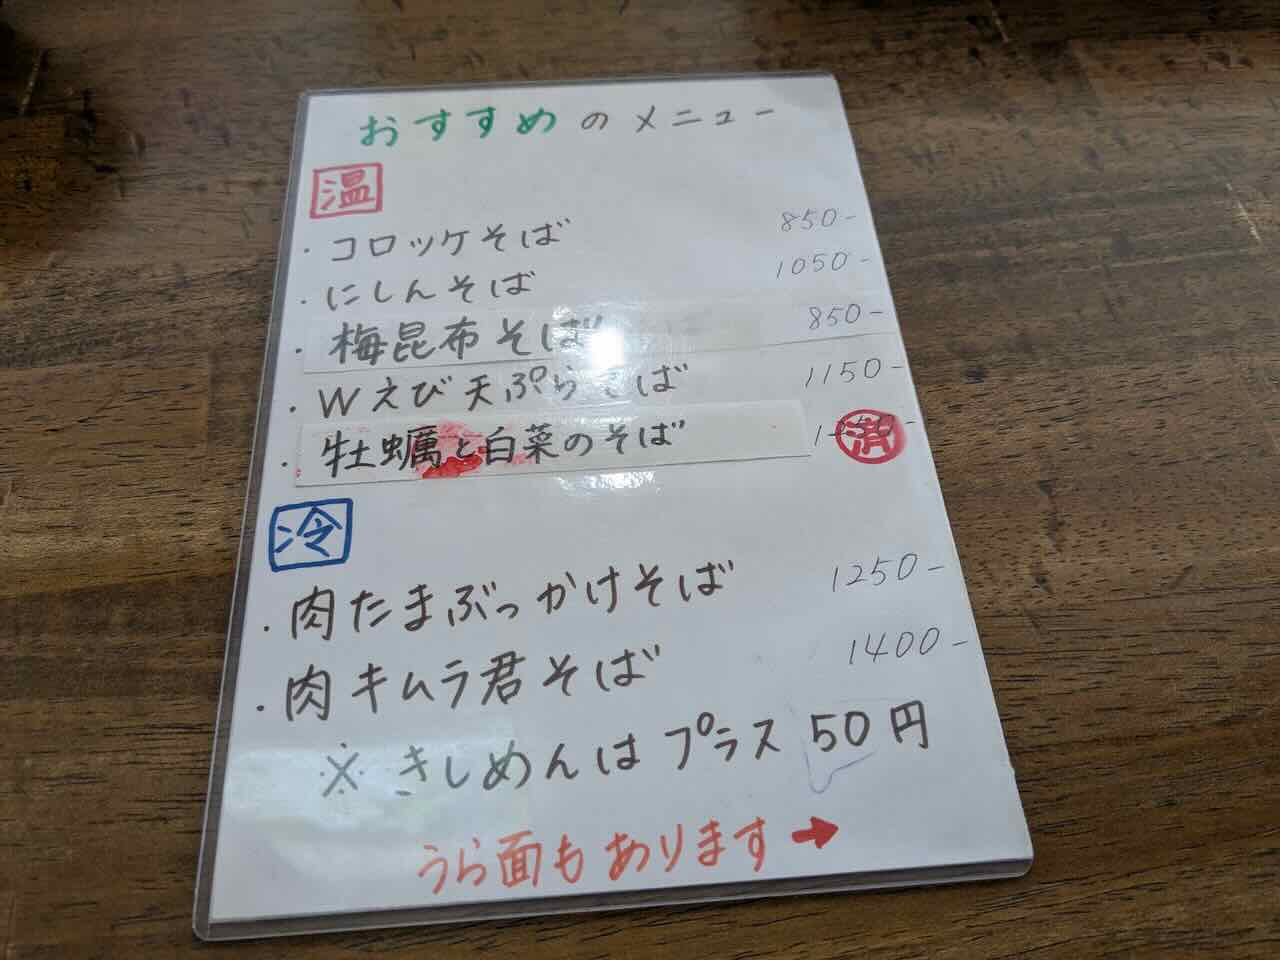 おすすめのメニュー
温
・コロッケそば 850-
・にしんそば 1050-
・梅昆布そば 850-
・Wえび天ぷらそば 1150-
・牡蠣と白菜のそば 済
冷
・肉たまぶっかけそば 1250-
・肉キムラ君そば 1400-
※きしめんはプラス50円
うら面もあります→